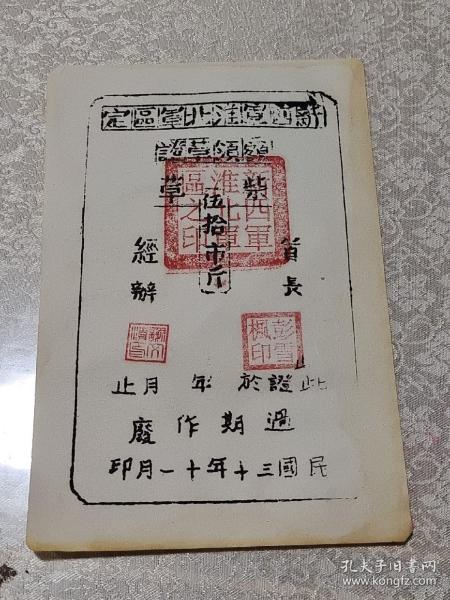 新四軍淮北軍區定
額領草證
柴草
伍拾市斤
新四軍淮北軍區之印
首長
經辦
彭雪楓印
此證於 年 月止
過期作廢
民國三十年十一月印
孔夫子旧书网
www.kongfz.com